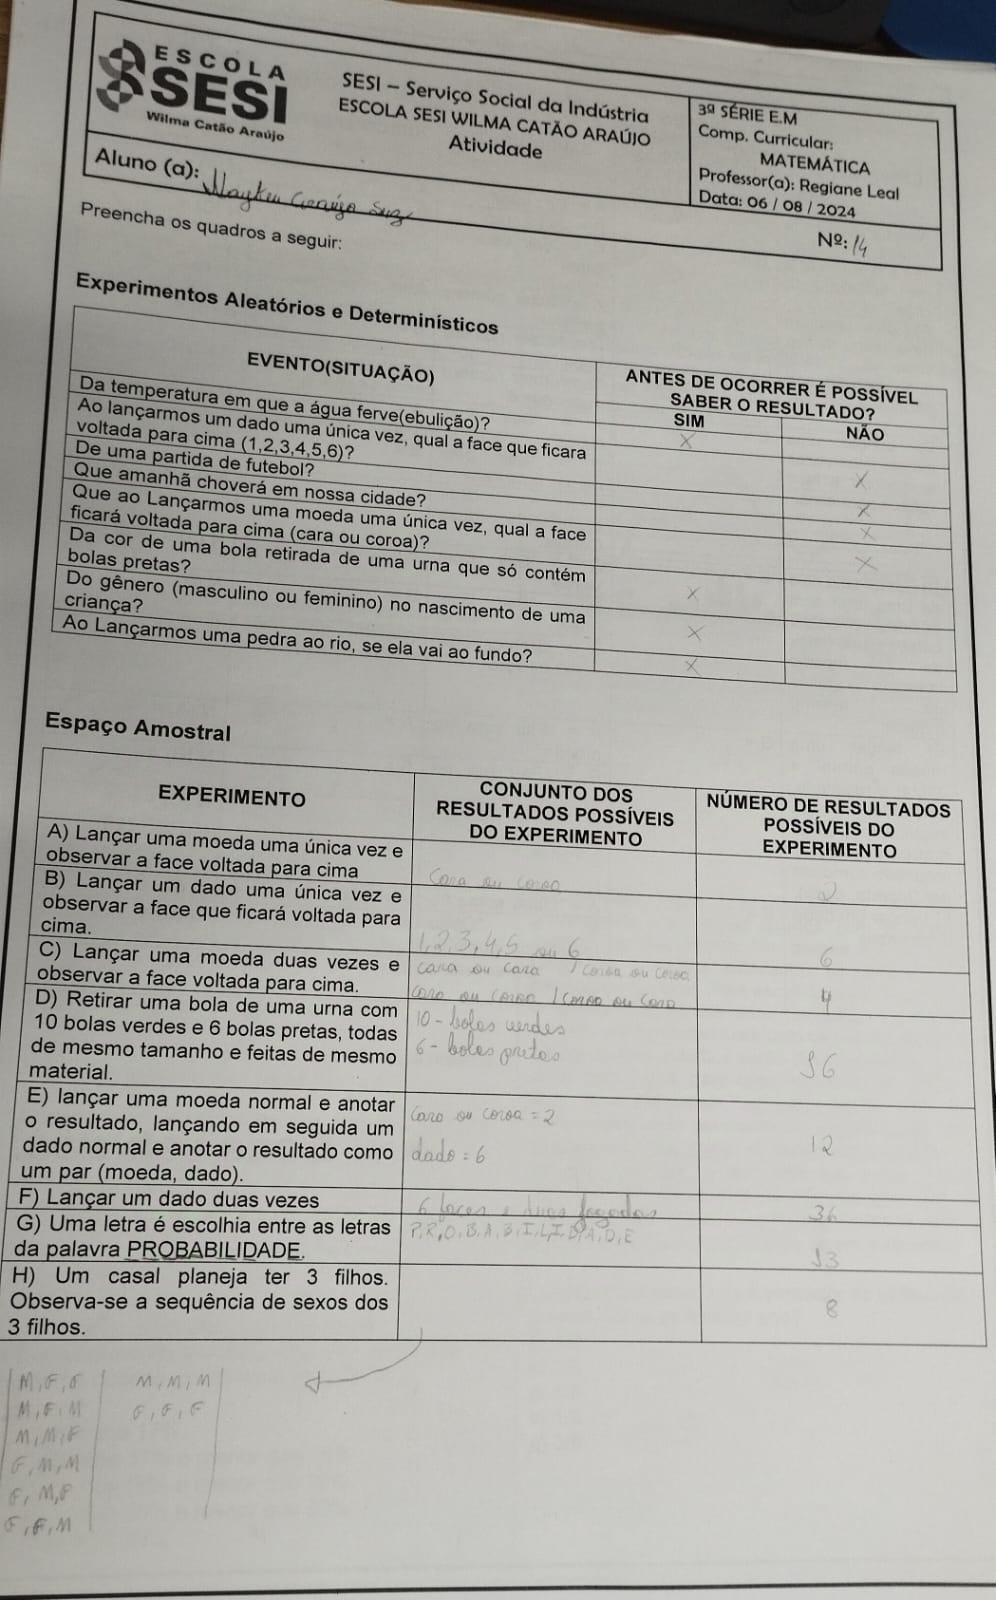 ESCOLA
SESI
Wilma Catão Araújo
SESI – Serviço Social da Indústria
ESCOLA SESI WILMA CATÃO ARAÚJO
Atividade
3ª SÉRIE E.M
Comp. Curricular:
MATEMÁTICA
Professor(a): Regiane Leal
Data: 06 / 08 / 2024
Aluno (a):
Nº: 14
Preencha os quadros a seguir:
Experimentos Aleatórios e Determinísticos
EVENTO(SITUAÇÃO)
ANTES DE OCORRER É POSSÍVEL
SABER O RESULTADO?
SIM
NÃO
Da temperatura em que a água ferve(ebulição)?
X
Ao lançarmos um dado uma única vez, qual a face que ficara
voltada para cima (1,2,3,4,5,6)?
X
De uma partida de futebol?
X
Que amanhã choverá em nossa cidade?
X
Que ao Lançarmos uma moeda uma única vez, qual a face
ficará voltada para cima (cara ou coroa)?
X
Da cor de uma bola retirada de uma urna que só contém
bolas pretas?
X
Do gênero (masculino ou feminino) no nascimento de uma
criança?
X
Ao Lançarmos uma pedra ao rio, se ela vai ao fundo?
X
Espaço Amostral
EXPERIMENTO
CONJUNTO DOS
RESULTADOS POSSÍVEIS
DO EXPERIMENTO
NÚMERO DE RESULTADOS
POSSÍVEIS DO
EXPERIMENTO
A) Lançar uma moeda uma única vez e
observar a face voltada para cima
Cara ou coroa
2
B) Lançar um dado uma única vez e
observar a face que ficará voltada para
cima.
1,2,3,4,5 ou 6
6
C) Lançar uma moeda duas vezes e
observar a face voltada para cima.
cara ou cara / coroa ou coroa
cara ou coroa / coroa ou cara
4
D) Retirar uma bola de uma urna com
10 bolas verdes e 6 bolas pretas, todas
de mesmo tamanho e feitas de mesmo
material.
10 - bolas verdes
6 - bolas pretas
16
E) lançar uma moeda normal e anotar
o resultado, lançando em seguida um
dado normal e anotar o resultado como
um par (moeda, dado).
cara ou coroa = 2
dado = 6
12
F) Lançar um dado duas vezes
6 faces e duas jogadas
36
G) Uma letra é escolhia entre as letras
da palavra PROBABILIDADE.
P, R, O, B, A, B, I, L, I, D, A, D, E
13
H) Um casal planeja ter 3 filhos.
Observa-se a sequência de sexos dos
3 filhos.
8
M, F, F
M, F, M
M, M, F
F, M, M
F, M, F
F, F, M
M, M, M
F, F, F